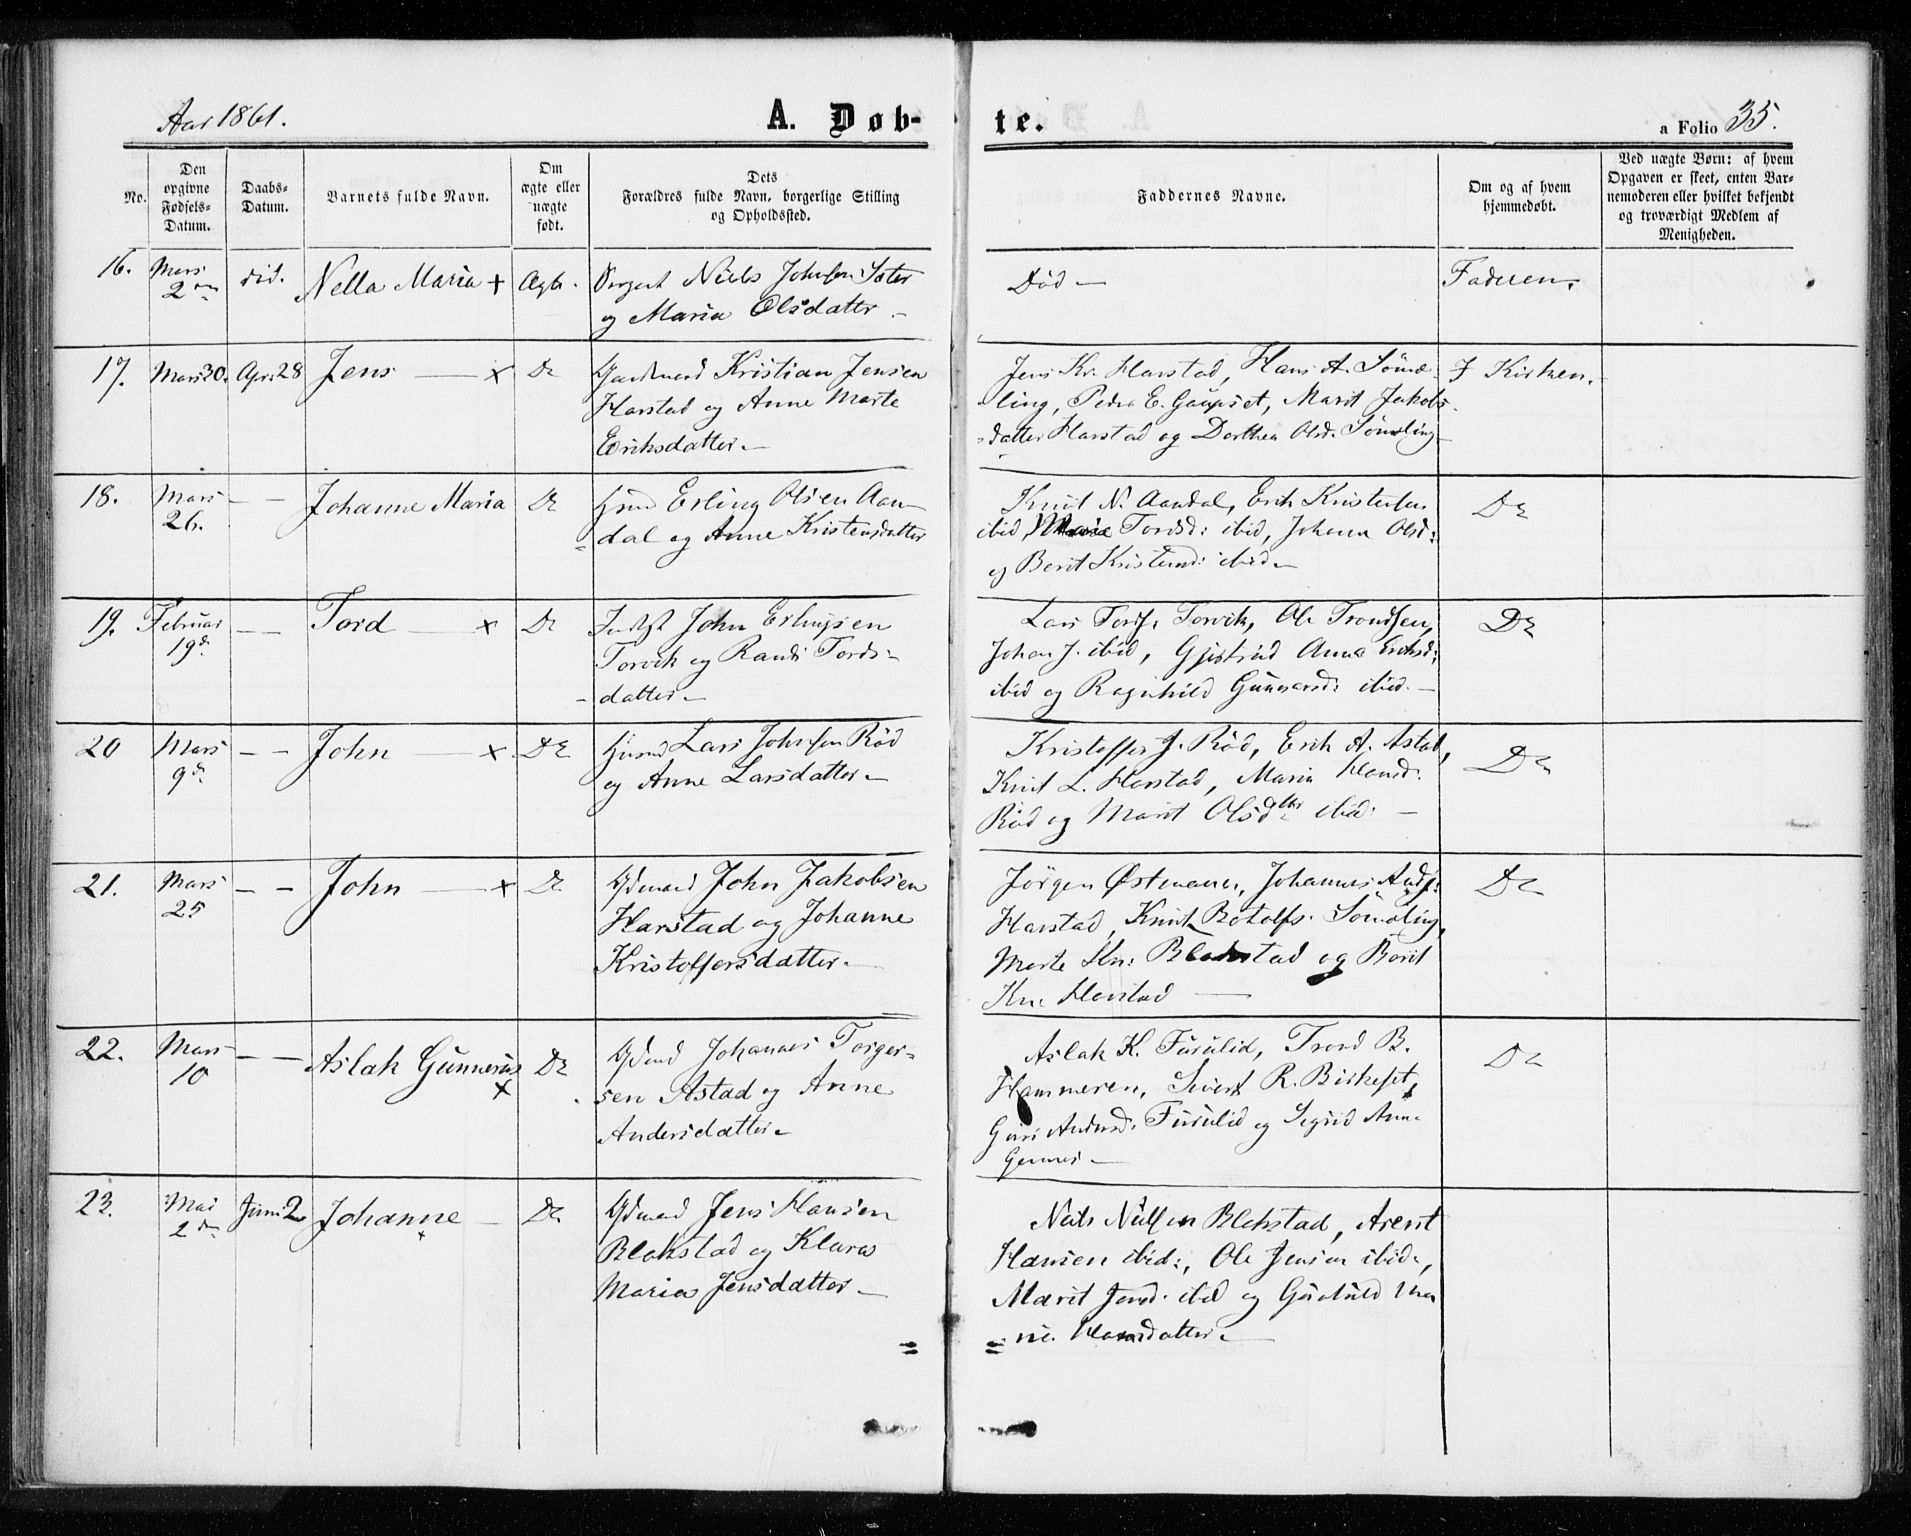 Aar 1861.
A. Døb-
te.
a Folio 35.
No.
Den
opgivne
Fødsels-
Datum.
Daabs-
Datum.
Barnets fulde Navn.
Om
ægte eller
uægte
født.
Dets
Forældres fulde Navn, borgerlige Stilling
og Opholdssted.
Faddernes Navne.
Om og af hvem
hjemmedøbt.
Ved uægte Børn: af hvem
Opgaven er skeet, enten Bar-
nemoderen eller hvilket bekjendt
og troværdigt Medlem af
Menigheden.
16.
Mars
2
Nella Maria +
Niels Johnsen
og Maria Olsdatter -
Død -
Faderen.
17.
Mars 30.
Apr. 28
Jens x
D
Kristian Jensen
Harstad og Anne Marte
Eriksdatter -
Jens Kr. Harstad, Hans A. Sömd-
ling, Peder E. Gaupset, Marit Jakobs-
datter Harstad og Dorthea Olsd. Sömdling
I Kirken.
18.
Mars
26.
- -
Johanne Maria
D
Erling Olsen Aan-
dal og Anne Kristensdatter
Knut N. Aandal, Erik Kristensen
ibid, Marie Tordsd: ibid, Johanna Olsd:
og Berit Kristensd: ibid -
D
19.
Februar
19d
- -
Tord x
D
John Erlingsen
Torvik og Randi Tords-
datter -
Lars Tords. Torvik, Ole Trondsen,
Johan J. ibid, Gjertrud Anna Eriksd:
ibid og Ragnhild Gunnarsd: ibid. -
D
20
Mars
9d
- -
John x
D
Lars Johnsen Röd
og Anne Larsdatter -
Kristoffer J. Röd, Erik A. Astad,
Knut L. Harstad, Maria Hansd.
Röd og Marit Olsdttr ibid: -
D
21.
Mars
25
- -
John x
D
John Jakobsen
Harstad og Johanne
Kristoffersdatter -
Jörgen Østmann, Johannes Ands:
Harstad, Knut Botolfs. Sömdling,
Marte Blakstad og Berit
Kn. Harstad -
D
22.
Mars
10
- -
Aslak Gunnerius
x
D
Johannes Torger-
sen Astad og Anne
Andersdatter -
Aslak K. Furulid, Trond B.
Hammeren, Sivert R. Birkeset,
Guri Andersd. Furulid og Sigrid Anne
D
23.
Mai
2d
Juni 2
Johanne -
x
D
Jens Hansen
Blakstad og Klara
Maria Jensdatter -
Niels Nilsen Blakstad, Arent
Hansen ibid:, Ole Jensen ibid.,
Marit Jensd. ibid og
Hansdatter -